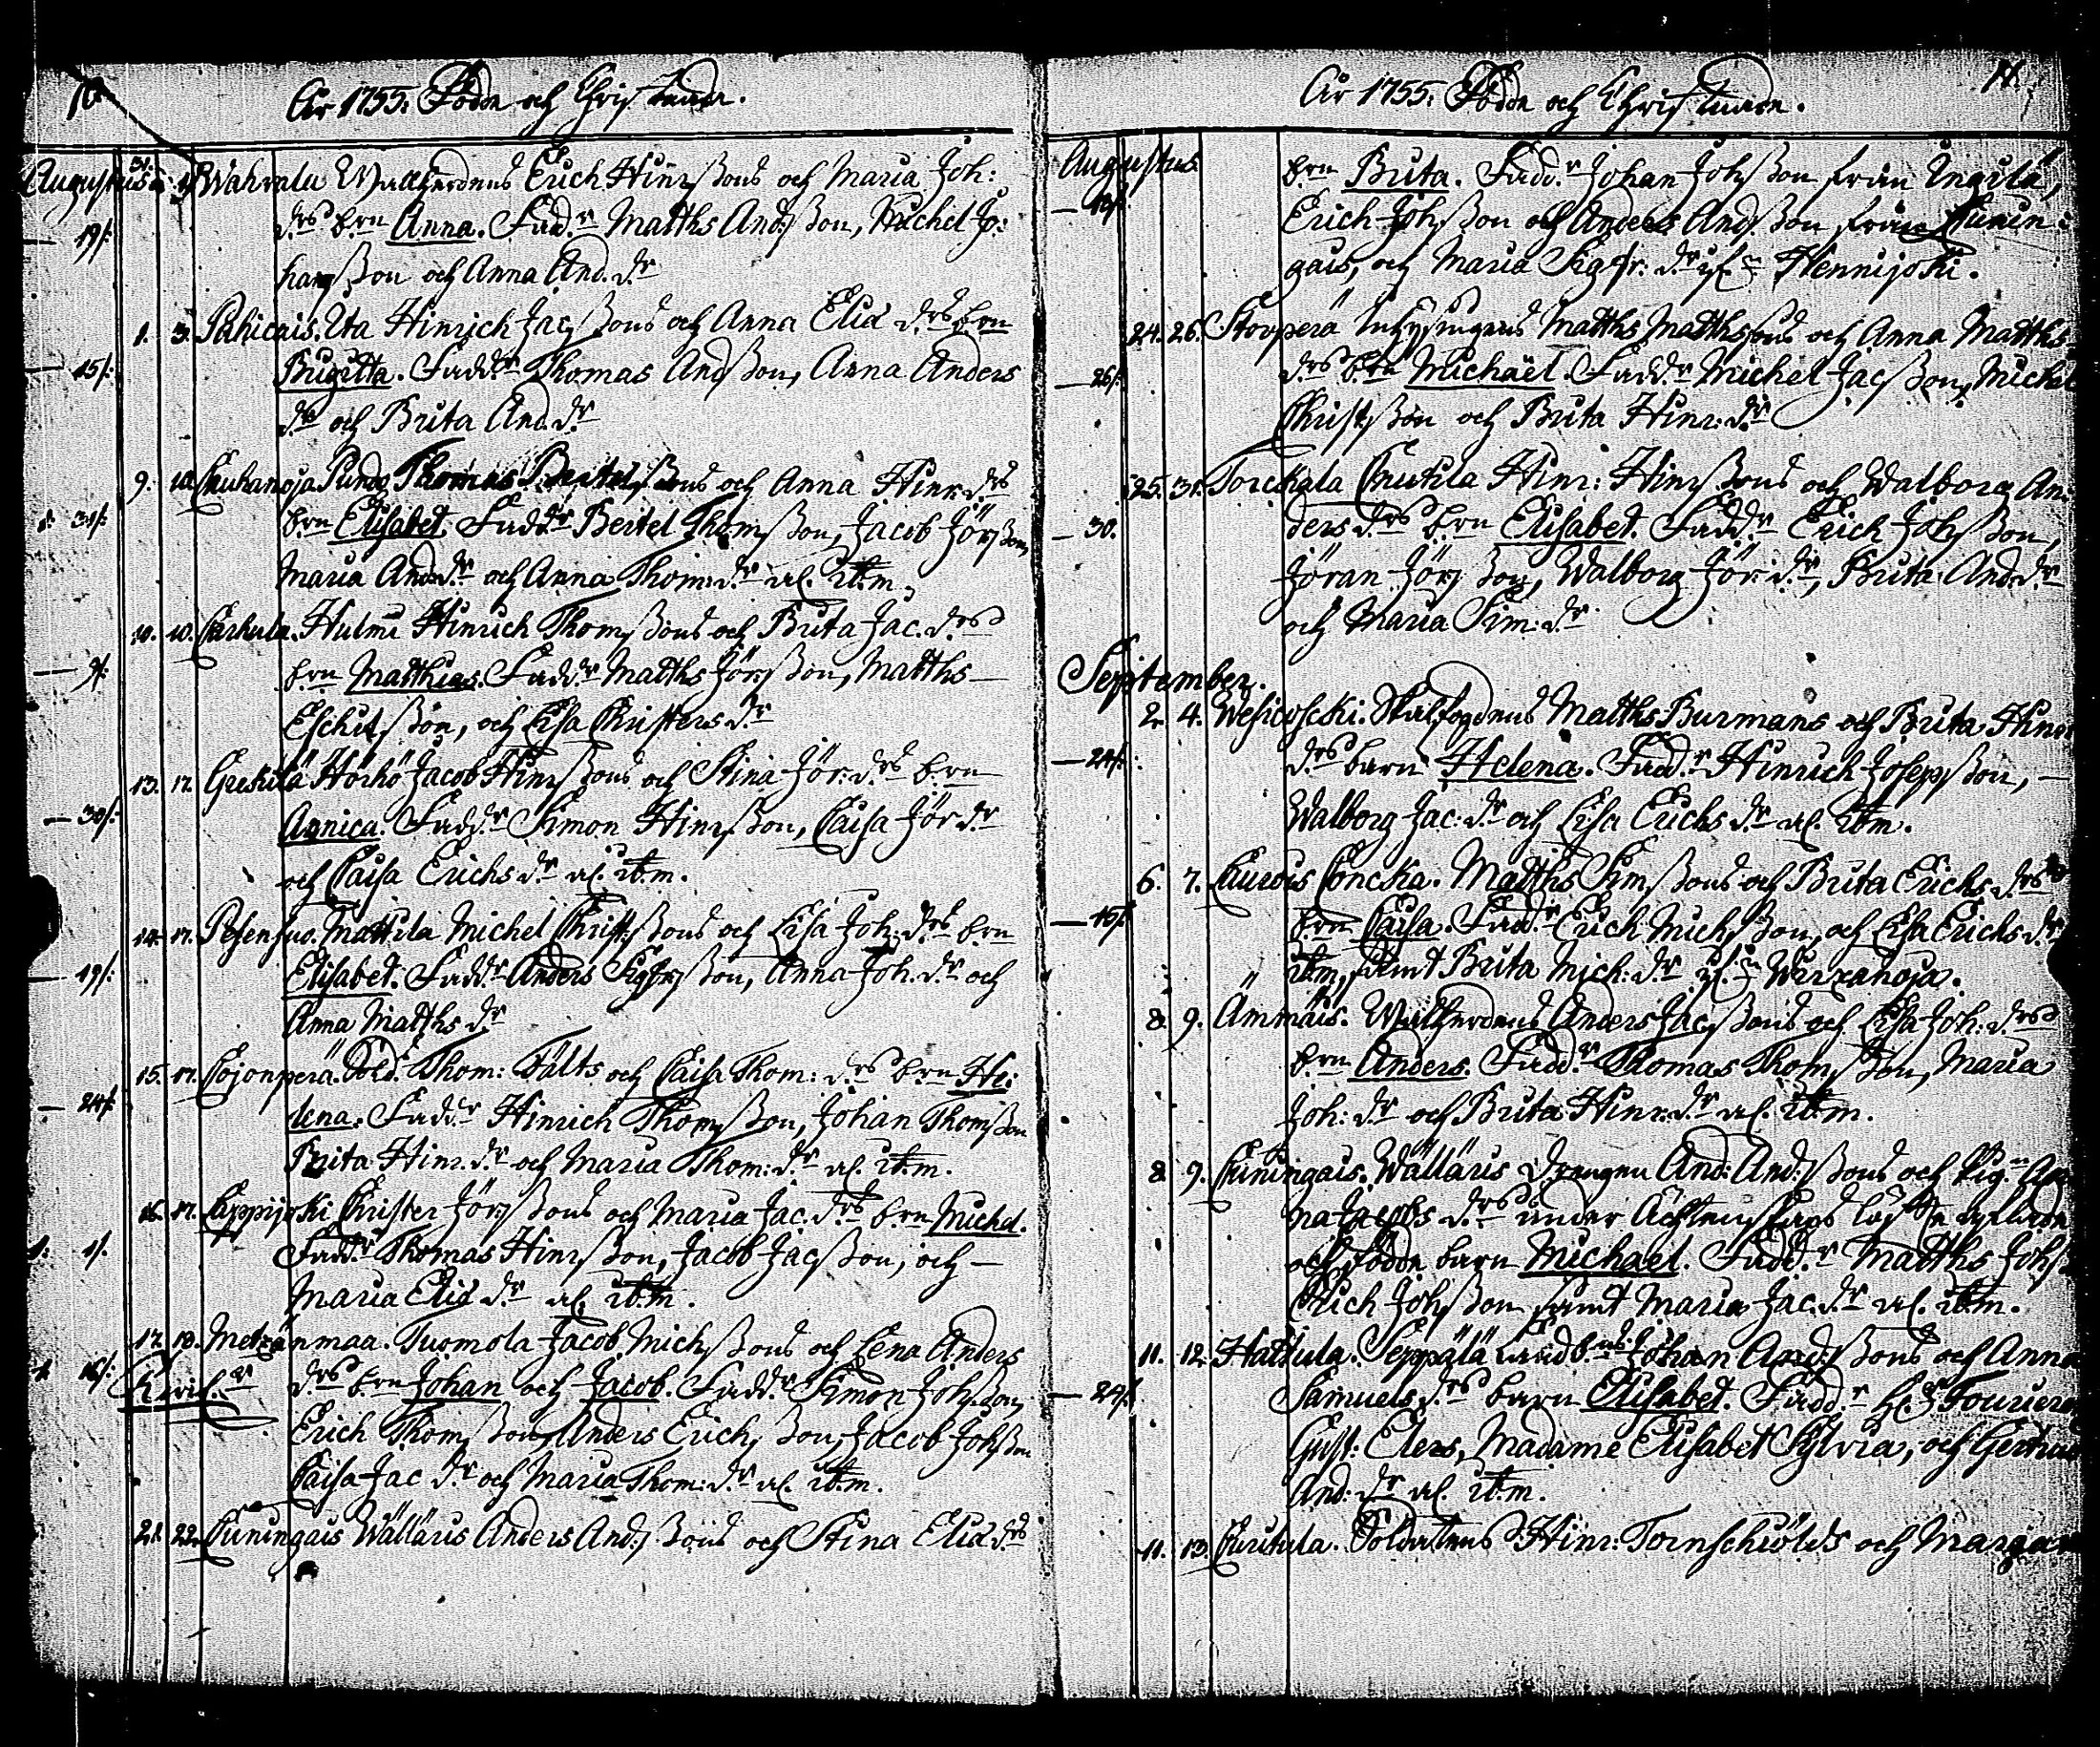 10.
År 1755. Födde och Christnade.
Augustus 31. Wahvala Wallherdens Erich Hinrssons och Maria Joh:
19/: drs brn Anna. Fadd.r Matths Andsson, Michel Jo:
hansson och Anna And.dr
1. 3. Pahicais. Uta Hinrich Jacssons och Anna Eliæ drs brn
15/: Brigitta. Faddr Thomas Andsson, Anna Anders
dr och Brita And.dr
9. 10. Pundo Thomas Bertelssons och Anna Hinr.drs
31/: brn Elisabet. Faddr Bertel Thomsson, Jacob Jörsson
Maria And.dr och Anna Thom.dr al. ib.m.
10. 10. Carhula. Hulmi Hinrich Thomssons och Brita Jac.drs
9/: brn Matthias. Faddr Matths Jörsson, Matths
Eschilsson, och Lisa Christers dr
13. 17. Greckilä Hörhö Jacob Hinrssons och Stina Jör.drs brn
30/: Annica. Faddr Simon Hinrsson, Caisa Jör.dr
och Caisa Erichs dr al. ib.m.
14. 17. Pesensuo. Mattila Michel Christssons och Lisa Joh.drs brn
19/: Elisabet. Faddr Anders Sigfrsson, Anna Joh.dr och
Anna Matths dr
15. 17. Cojonperä. Sold. Thom: Fälts och Caisa Thom: drs brn He:
24/: lena. Faddr Hinrich Thomsson, Johan Thomsson
Brita Hinr.dr och Maria Thom:dr al. ib.m.
16. 17. Lappijoki Christer Jörssons och Maria Jac.drs brn Michel.
1/: Faddr Thomas Hinrsson, Jacob Jacsson, och
Maria Eliæ dr al. ib.m.
17. 18. Metzänmaa. Tuomola Jacob Michssons och Lena Anders
16/: drs brn Johan och Jacob. Faddr Simon Johsson
Erich Thomsson, Anders Erichsson, Jacob Johsson
Caisa Jac dr och Maria Thom:dr al. ib.m.
21. 22. Cuningais Wälläris Anders Andssons och Stina Eliæ drs
År 1755. Födde och Christnade.
11.
Augustus brn Brita. Faddr Johan Johsson från Ungila,
Erich Johsson och Anders Andsson från Cunin:
gais, och Maria Sigfr: dr if.n Hennijoki.
24. 26. Storperä Inhysingens Matths Matthssons och Anna Matths
26/: drs brn Michaël. Faddr Michel Jacsson, Michel
Christsson och Brita Hinr:dr
25. 31. Torckala Cnutila Hinr: Hinrssons och Walborg An:
30. ders drs brn Elisabet. Faddr Erich Johsson,
Jöran Jörsson, Walborg Jör:dr, Brita And:dr
och Maria Sim:dr
September.
2. 4. Wesicoscki. Matths Burmans och Brita Hinr
24/: drs barn Helena. Faddr Hinrich Josepsson,
Walborg Jac:dr och Lisa Erichs dr al. ib.m.
6. 7. Curois Concka. Matths Simssons och Brita Erichs drs
15/: brn Caisa. Faddr Erich Michsson, och Lisa Erichs dr
ib.m, samt Brita Mich:dr if.n Wirranoja.
8. 9. Ämmäis. Wallherdens Anders Jacssons och Lisa Joh:drs
brn Anders. Faddr Thomas Thomsson, Maria
Joh: dr och Brita Hinr:dr al. ib.m.
8. 9. Cuningais. Wälläris Drängen And: Andssons och Pig.n An
na Jacobs drs under Ächtenskaps löfte aflade
och födde barn Michael. Faddr Matths Johs
Erich Johsson samt Maria Jac.dr al. ib.m.
11. 12. Hallula. Seppälä Landb.ns Johan Andssons och Anna
24/: Samuels drs barn Elisabet. Faddr H.r Fourieren
Gust: Elers, Madame Elisabet Sylvia, och Gertrud
And:dr al. ib.m.
11. 13. Curitula. Soldatens Hinr: Tornschiölds och Margar